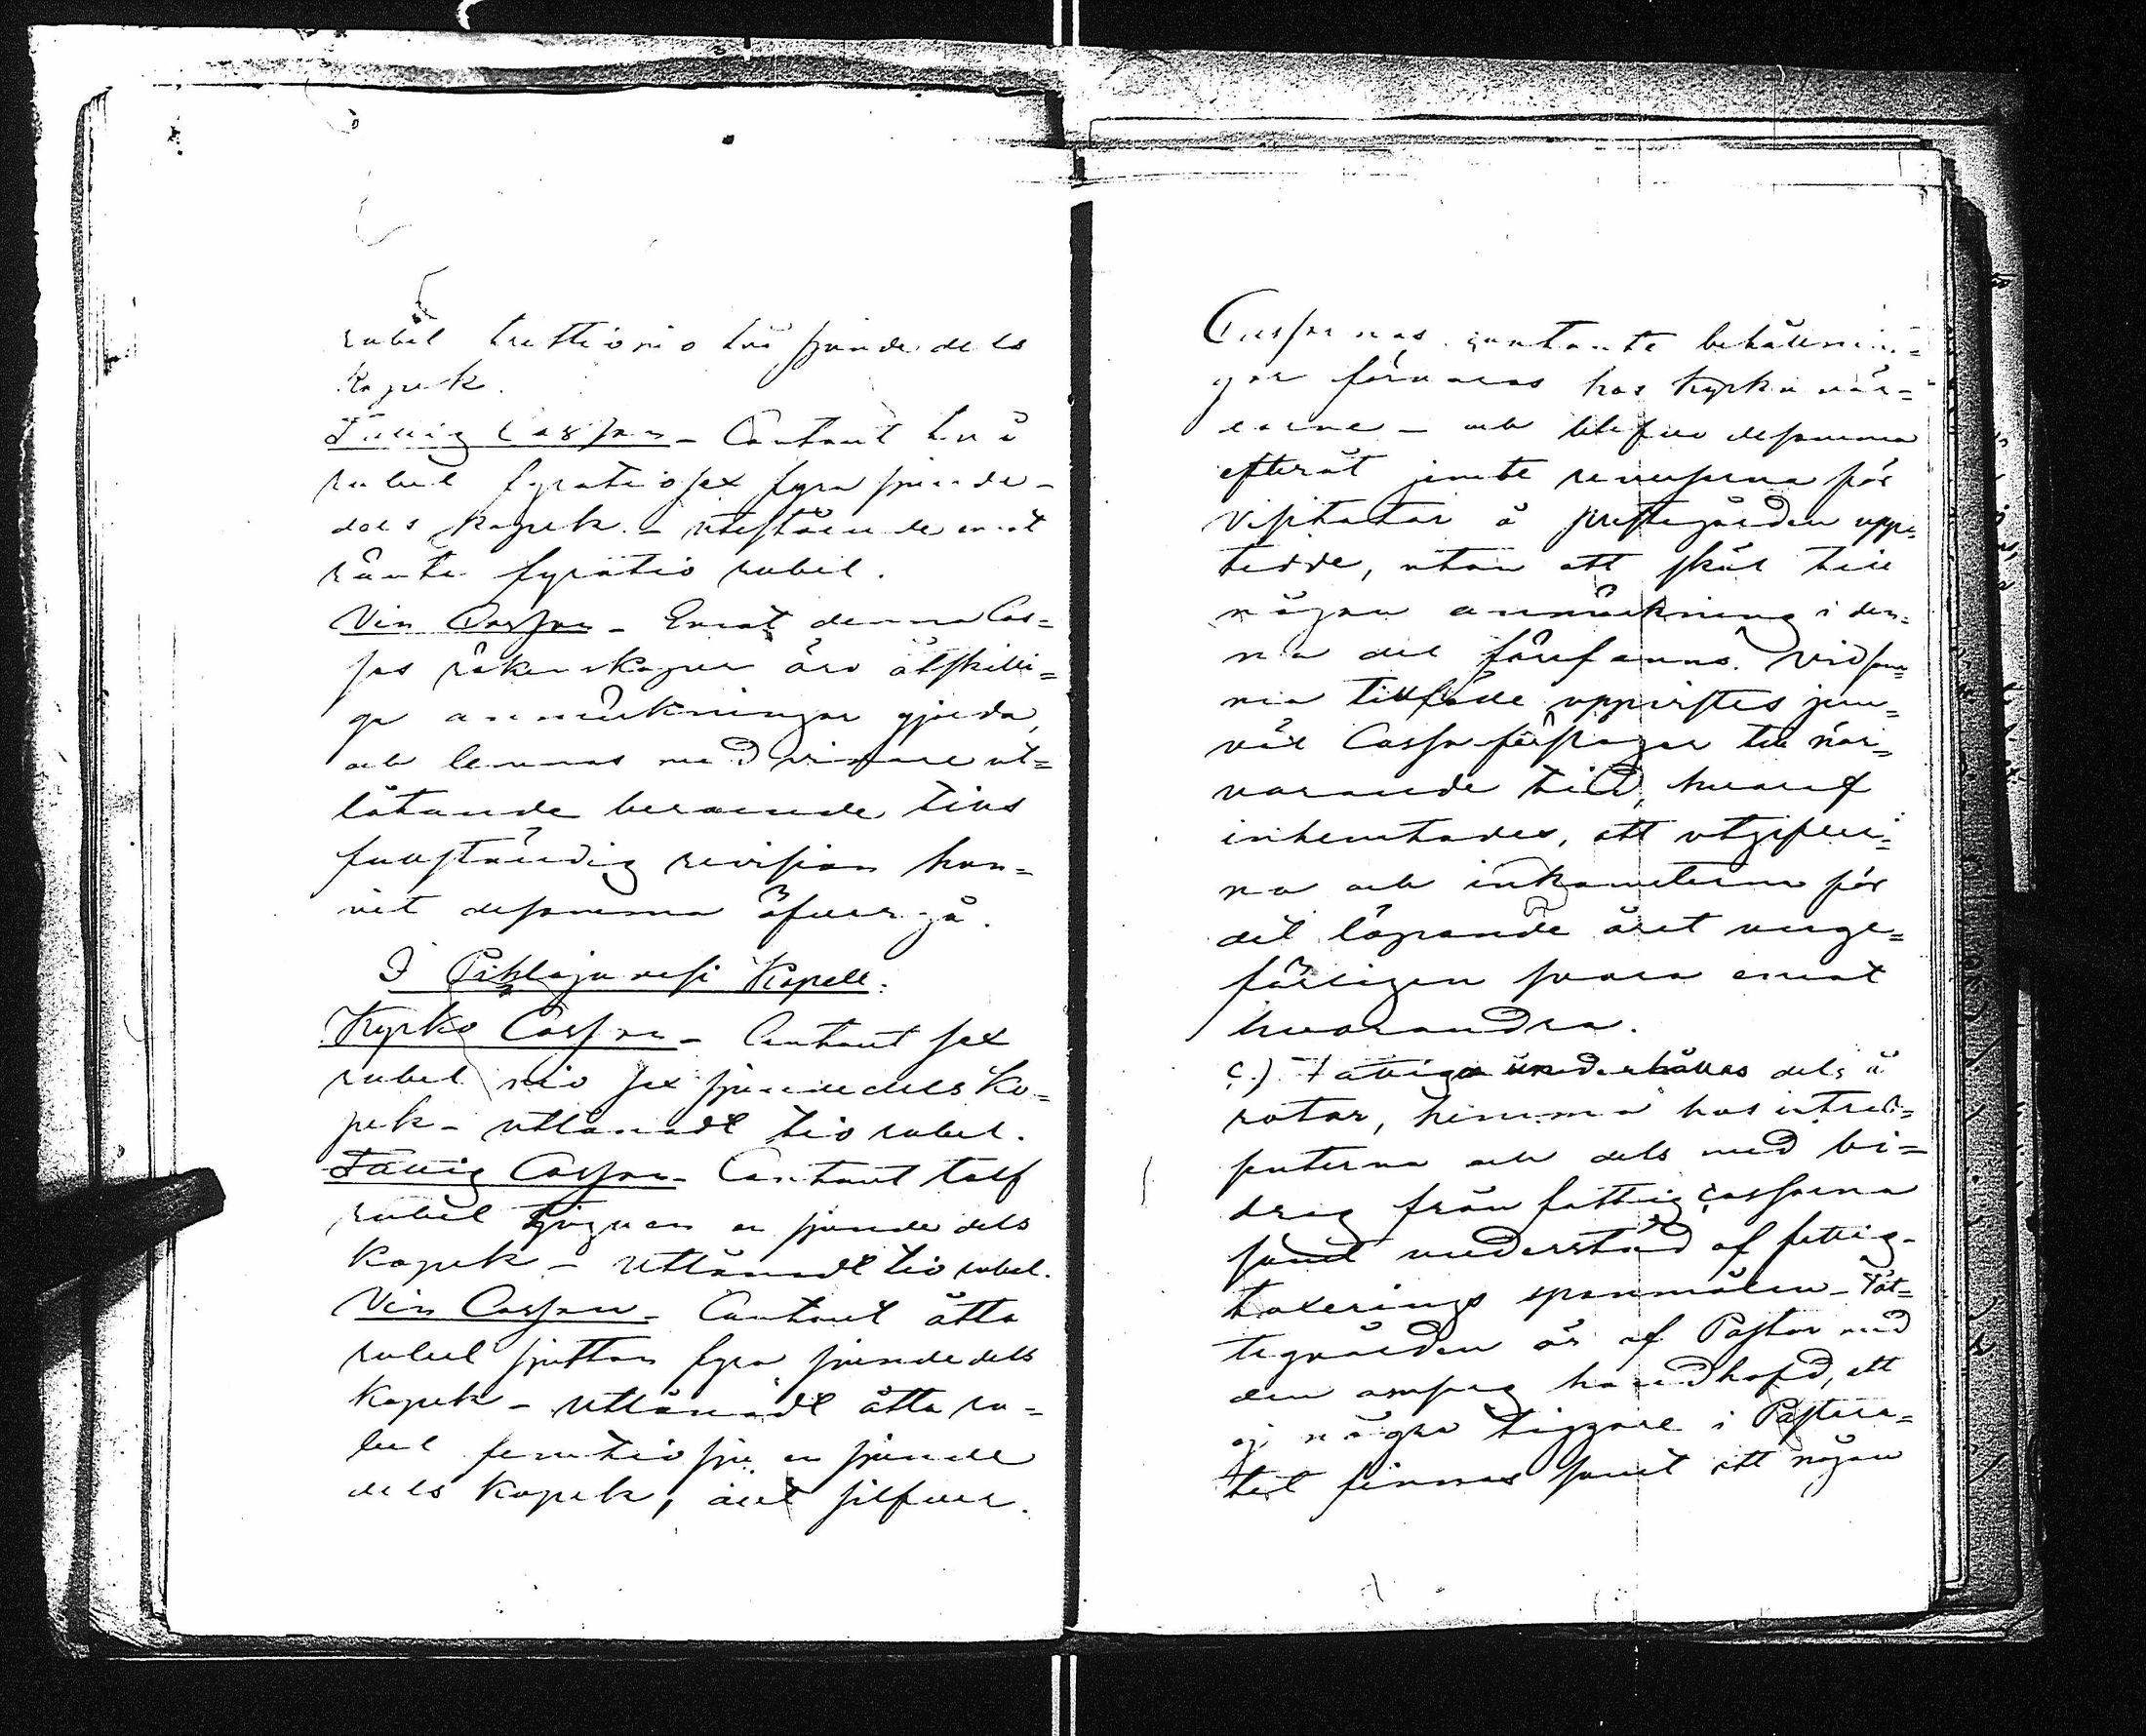 rubel trettionio två sjundedels
kopek.
Fattig Cassan - Contant två
rubel fyratiosex fyra sjunde-
dels kopek. - utestående emot
ränta fyratio rubel.
Vin Cassan - Emot denna Cas=
sas räkenskaper äro åtskilli=
ga anmärkningar gjorda,
och lemnas med vidare ut=
låtande beroende tills
fullständig revision hun=
nit desamma öfvergå.
I Pihlajavesi Kapell.
Kyrko Cassan - Contant sex
rubel nio sex sjundedels ko=
pek - utlånadt tio rubel.
Fattig Cassan - Contant tolf
rubel tjuguen en sjundedels
kopek - utlånadt tio rubel.
Vin Cassan - Contant åtta
rubel sjutton fyra sjundedels
kopek - utlånadt åtta ru=
bel femtiosju en sjunde
dels kopek, allt silfver.
Cassornas contanta behållnin=
gar förvaras hos kyrkovär=
darne - och blefvo desamma
efteråt jemte reverserna för
Visitator å prestgården upp=
tedde, utan att skäl till
någon anmärkning i den=
na del förefanns. Vid sam=
ma tillfälle uppvistes jem=
väl Cassaförslager till när=
varande tid, hvaraf
inhemtades, att utgifter=
na och inkomsterna för
det löpande året unge=
färligen svara emot
hvarandra.
c.) Fattiga underhållas dels å
rotar, hemma hos
och dels med bi=
drag från fattig cassorna
samt understöd af fattig-
taxerings spanmålen - Fat=
tigvården är af Pastor med
den omsorg handhafd, att
ej några tiggare i Pastora=
tet finnas samt att någon